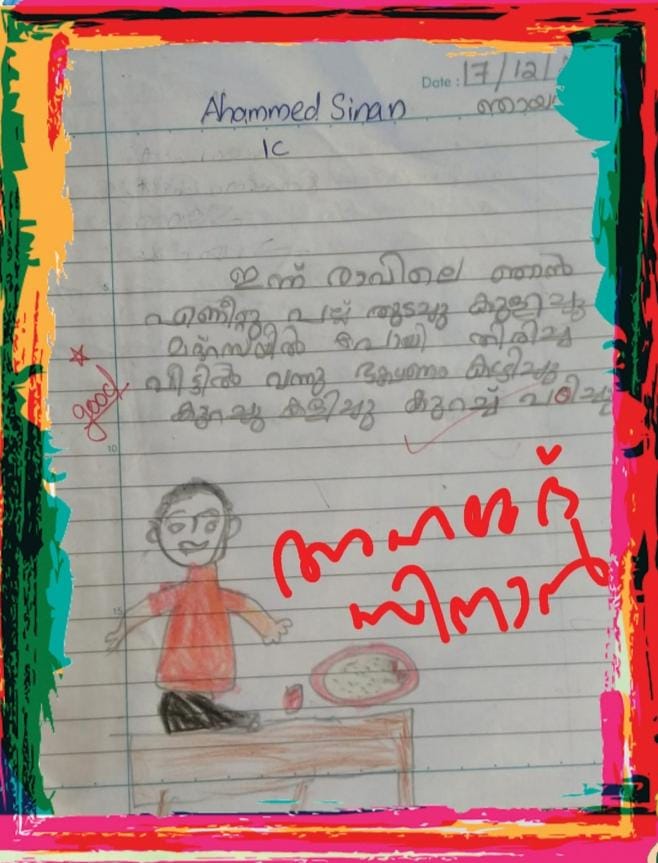 Date : 17/12/
ഞായ
Ahammed Sinan
1C
ഇന്ന് രാവിലെ ഞാൻ
എണീറ്റു പല്ല് തുടച്ചു കുളിച്ചു
മദ്റസയിൽ പോയി തിരിച്ച്
വീട്ടിൽ വന്നു ഭക്ഷണം കഴിച്ചു
കുറച്ചു കളിച്ചു കുറച്ച് പഠിച്ചു
good
5
10
15
അഹമ്മദ്
സിനാൻ